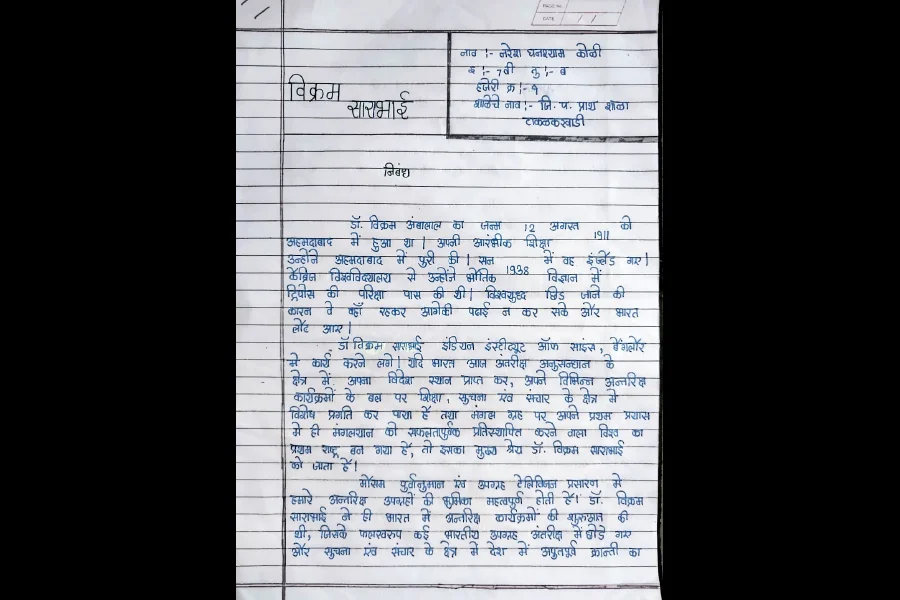 PAGE No.
DATE / /
नाव :- नरेश घनश्याम कोळी
इ :- 7वी तु :- ब
हजेरी क्र :- १
शाळेचे नाव :- जि. प. प्राथ शाळा
टाकळकरवाडी
विक्रम
साराभाई
निबंध
डॉ. विक्रम अंबालाल का जन्म 12 अगस्त 1911 को
अहमदाबाद में हुआ था | अपनी आरंभीक शिक्षा
उन्होंने अहमदाबाद में पुरी की | सन 1938 में वह इंग्लैंड गए |
केंब्रिज विश्वविद्यालय से उन्होंने भौतिक विज्ञान में
ट्रिपोस की परिक्षा पास की थी | विश्वयुध्द छिड जाने की
कारन वे वहाँ रहकर आगेकी पढाई न कर सके और भारत
लौट आए |
डॉ विक्रम साराभाई इंडियन इंस्टीट्यूट ऑफ साइंस, बैंगलौर
मे कार्य करने लगे | यदि भारत आज अंतरीक्ष अनुसन्धान के
क्षेत्र में अपना विदेश स्थान प्राप्त कर, अपने विभिन्न अन्तरिक्ष
कार्यक्रमों के बल पर शिक्षा, सुचना एंव संचार के क्षेत्र मे
विशेष प्रगति कर पाया है तथा मंगल ग्रह पर अपने प्रथम प्रयास
मे ही मंगलयान को सफलतापुर्वक प्रतिस्थापित करने वाला विश्व का
प्रथम राष्ट्र बन गया है, तो इसका मुख्य श्रेय डॉ. विक्रम साराभाई
को जाता है |
मौसम पुर्वानुमान एंव उपग्रह टेलिविजन प्रसारण मे
हमारे अन्तरिक्ष उपग्रहों की भुमिका महत्वपुर्ण होती है | डॉ. विक्रम
साराभाई ने ही भारत में अन्तरिक्ष कार्यक्रमों की शुरुआत की
थी, जिसके फलस्वरुप कई भारतीय उपग्रह अंतरीक्ष में छोडे गए
और सुचना एंव संचार के क्षेत्र मे देश में अभुतपुर्व क्रान्ती का